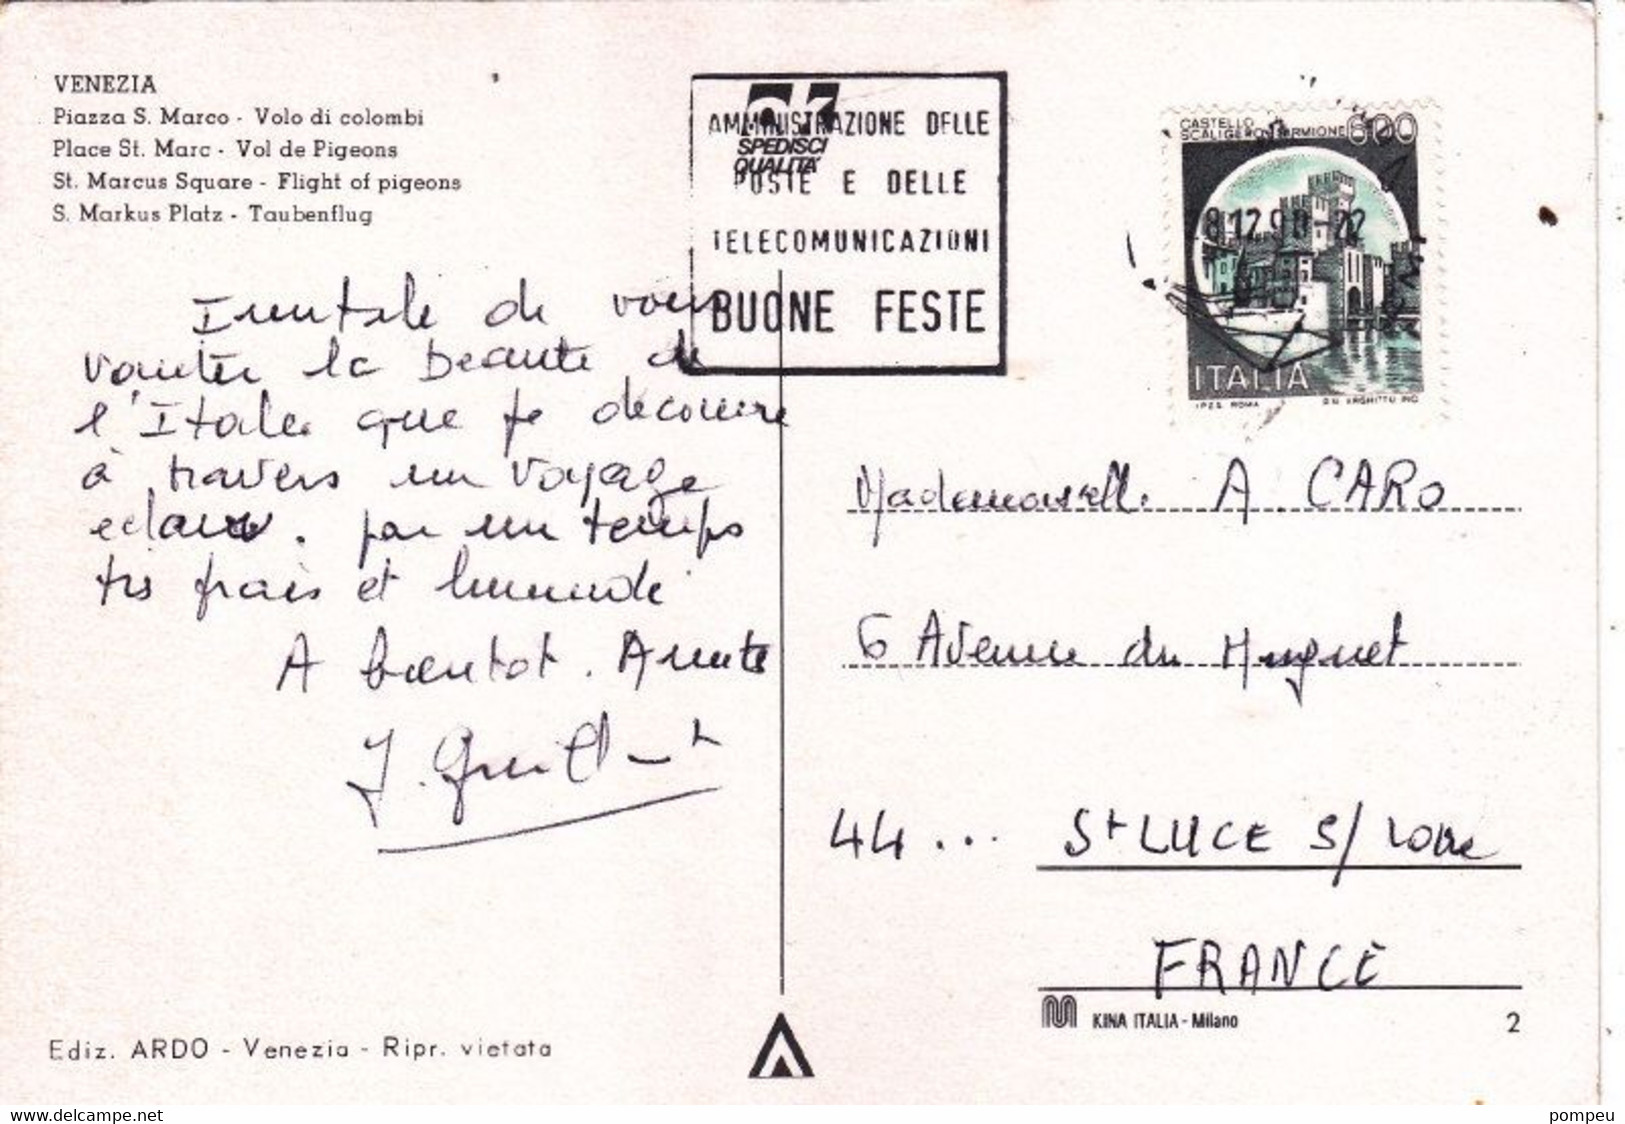 VENEZIA
Piazza S. Marco - Volo di colombi
Place St. Marc - Vol de Pigeons
St. Marcus Square - Flight of pigeons
S. Markus Platz - Taubenflug
SPEDISCI
QUALITA'
AMMINISTRAZIONE DELLE
POSTE E DELLE
TELECOMUNICAZIONI
BUONE FESTE
CASTELLO
SCALIGERO SIRMIONE 600
8 12 90-22
ITALIA
I.P.Z.S. ROMA
Inutile de vous
vanter la beauté de
l'Italie que je découvre
à travers un voyage
éclair. par un temps
très frais et humide
A bientot. Amitiés
J.
Mademoiselle A. CARO
6 Avenue du Muguet
44 ... St LUCE S/ Loire
FRANCE
KINA ITALIA - Milano
2
Ediz. ARDO - Venezia - Ripr. vietata
delcampe.net
pompeu